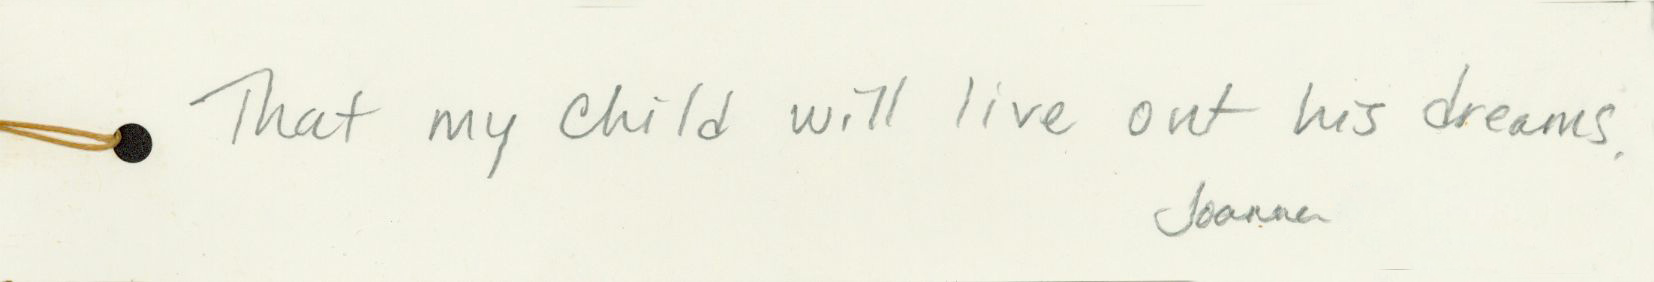 That my child will live out his dreams.
Joanna